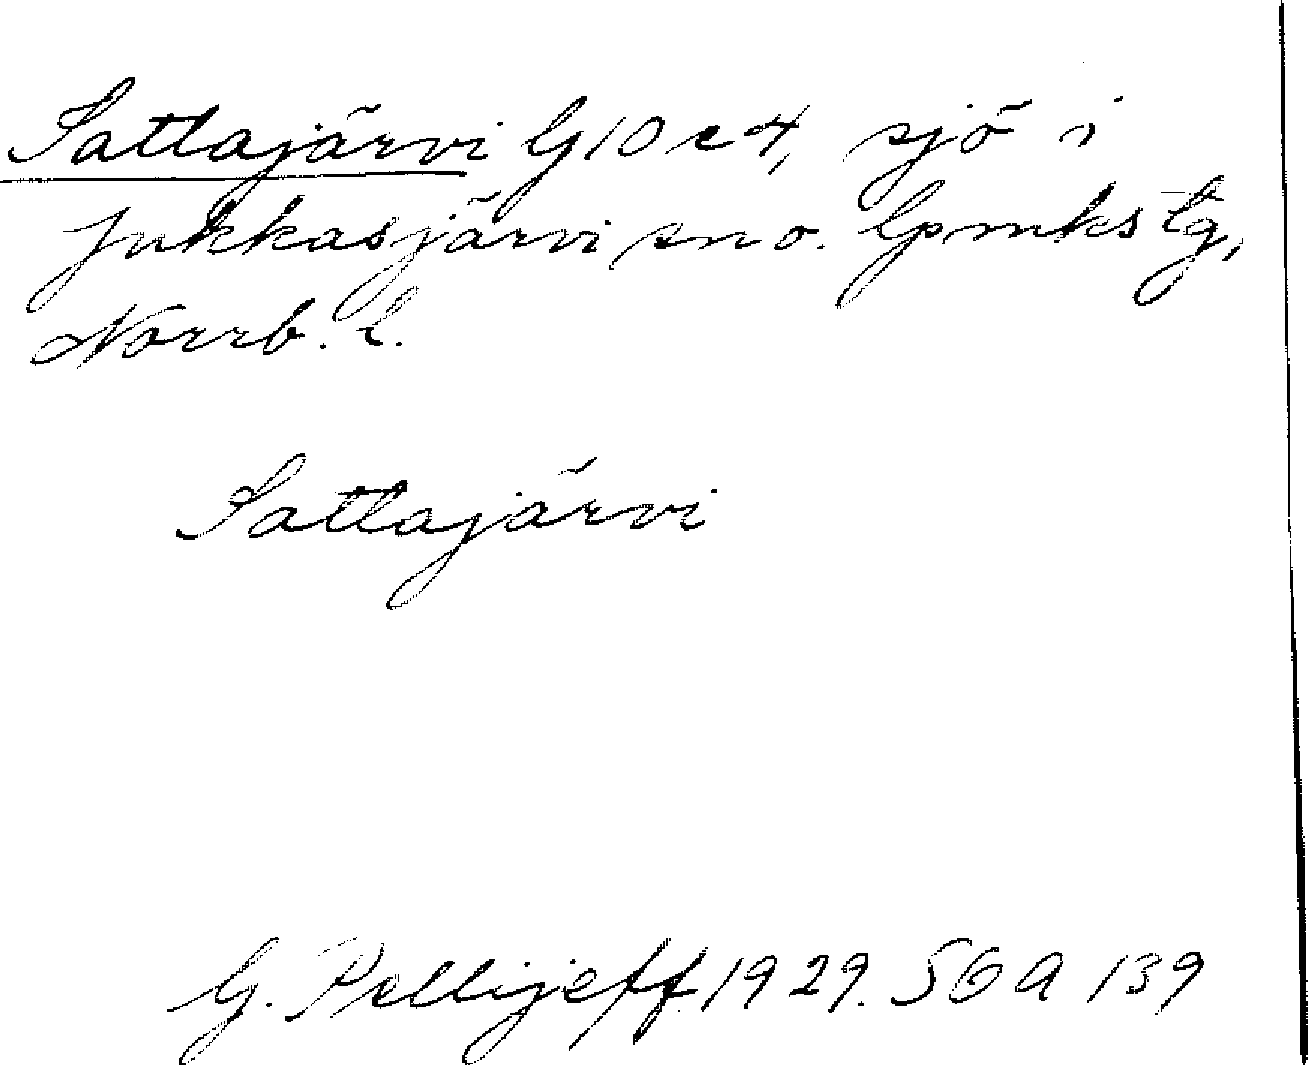 Sattajärvi G10c4, sjö i
Jukkasjärvi sn o. lpmks tg,
Norrb. l.
Sattajärvi
G. Pellijeff 1929. SGA 139